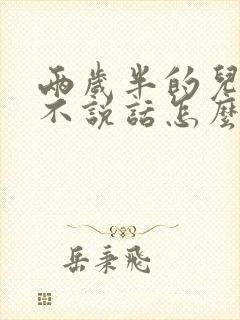 兩歲半的兒
不說話怎麼
岳秉飛